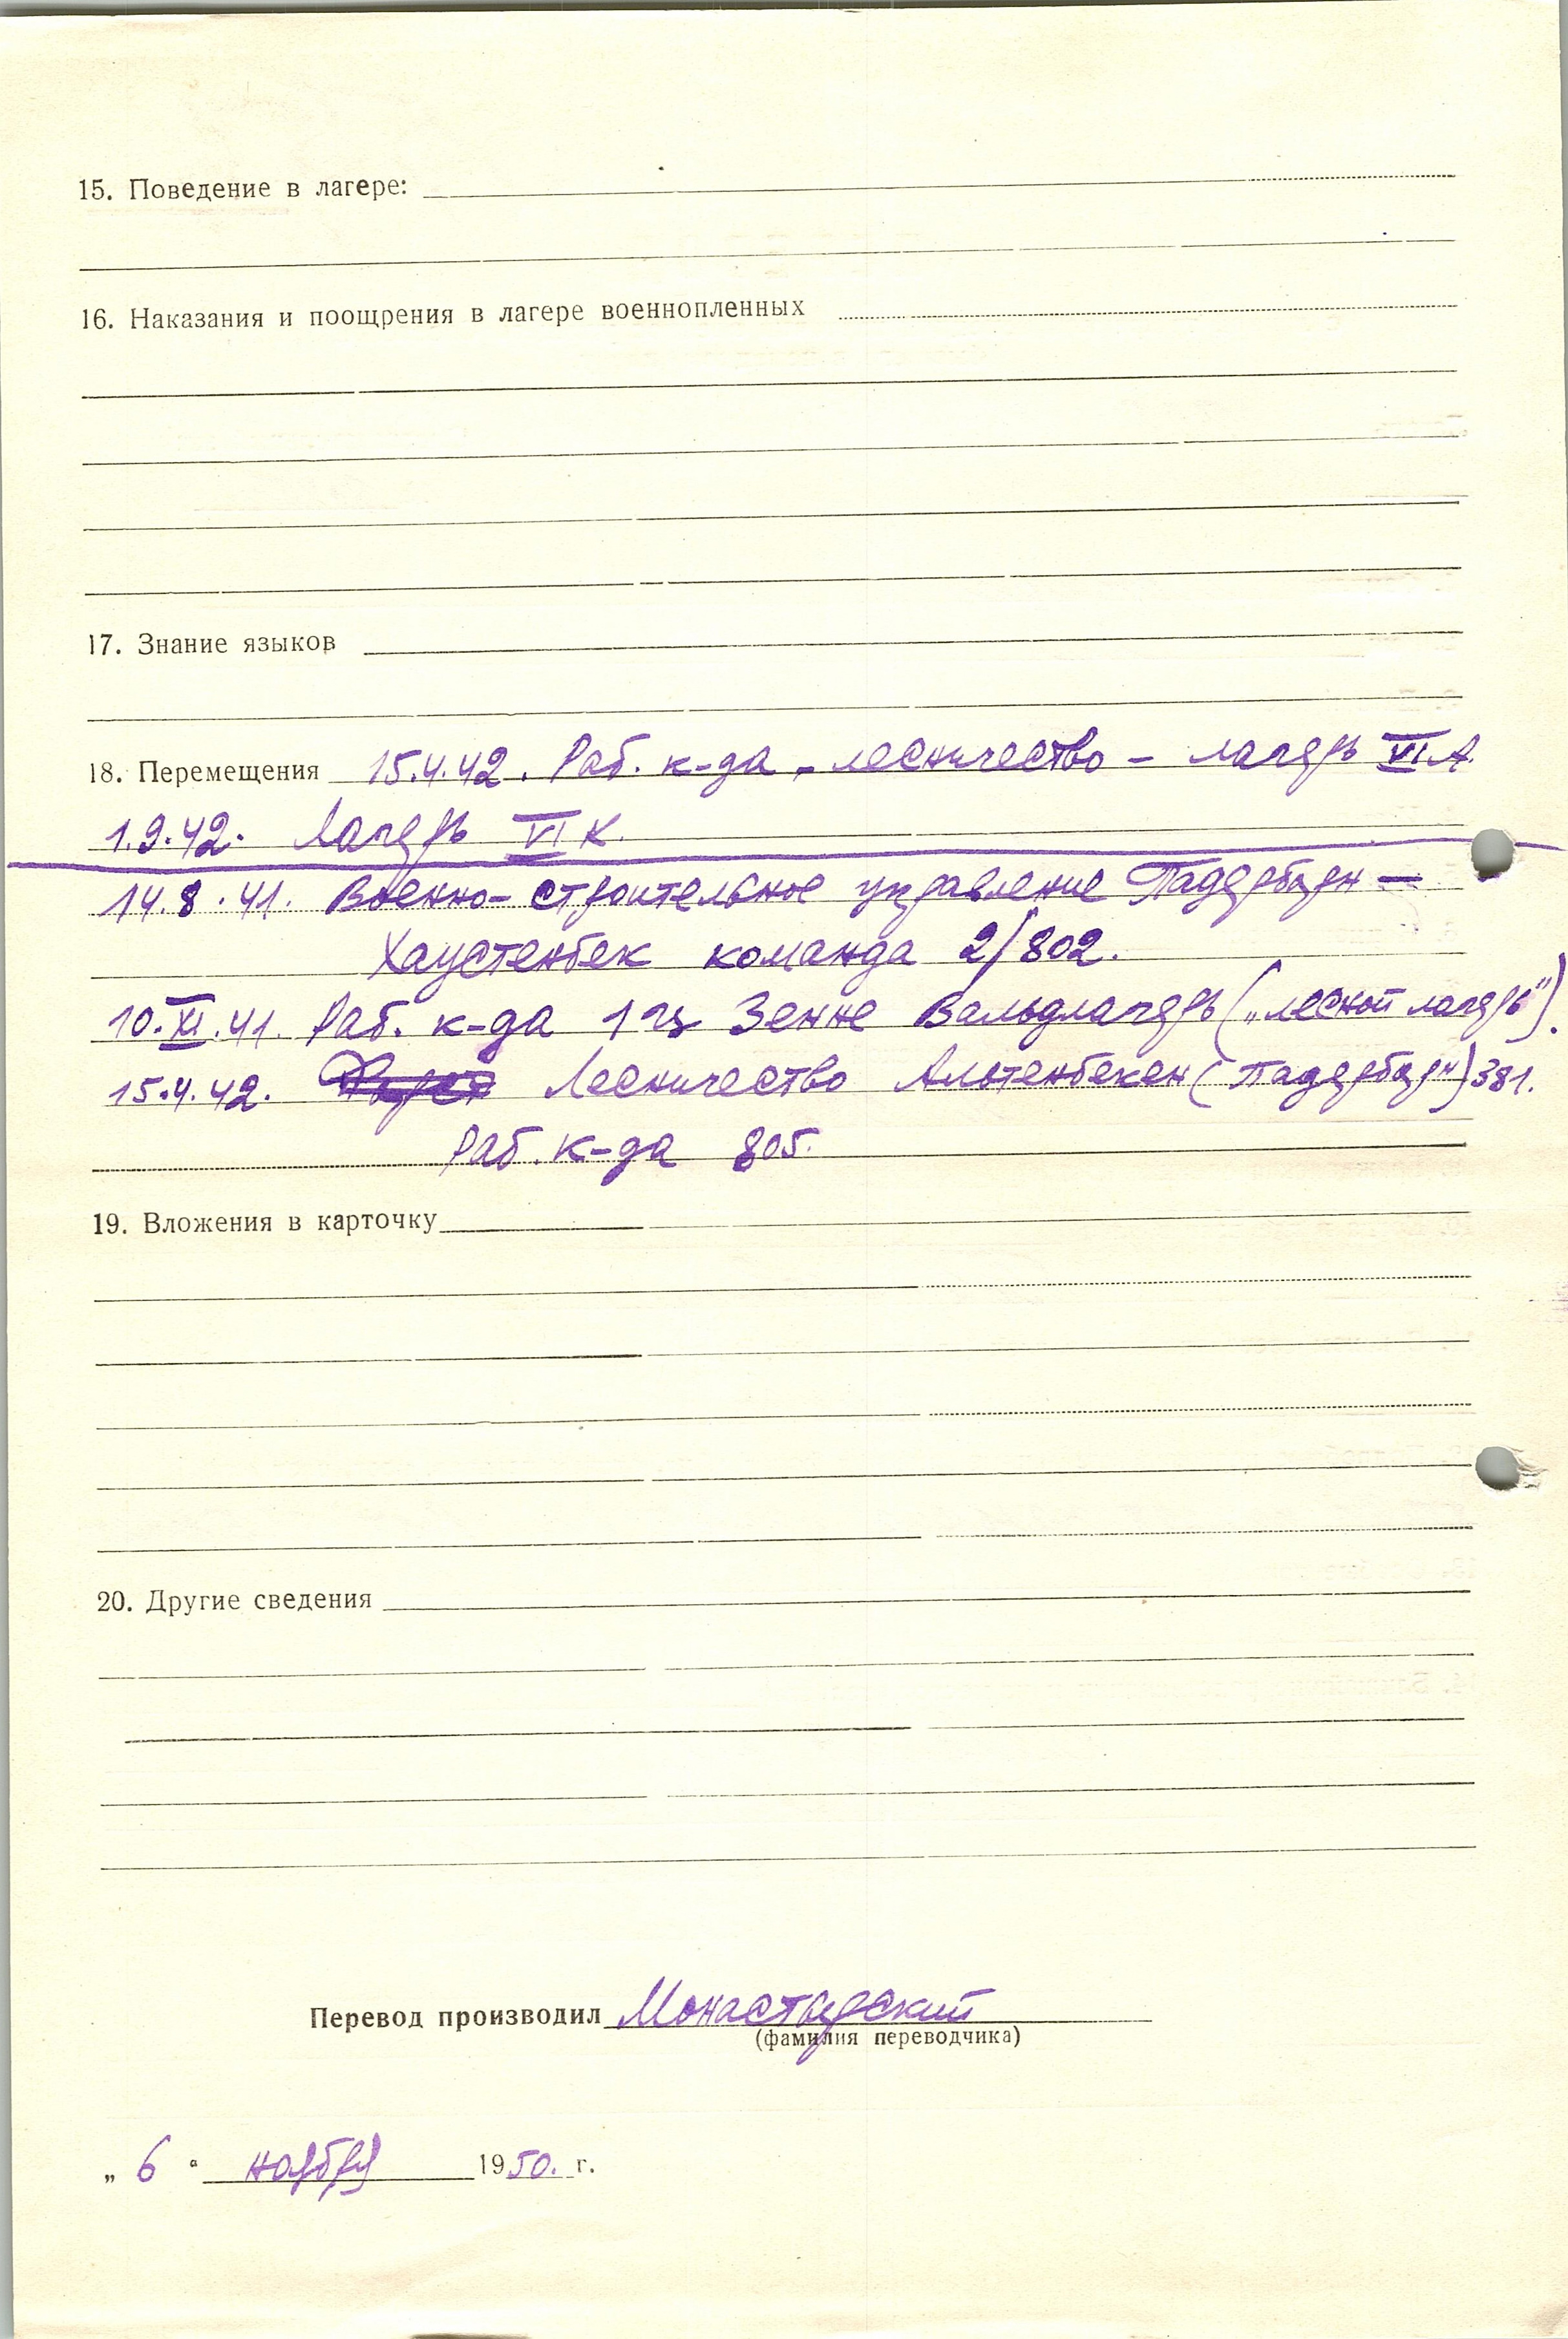 15. Поведение в лагере:
16. Наказания и поощрения в лагере военнопленных
17. Знание языков
18. Перемещения 15.4.42. Раб. к-да - лесничество - лагерь VI А.
1.9.42. Лагерь VI К.
14.8.41. Военно-строительное управление Падерборн -
Хаустенбек команда 2/802.
10.XI.41. Раб. к-да 1 Зенне Вальдлагерь („лесной лагерь").
15.4.42. Лесничество Альтенбекен (Падерборн) 381.
Раб. к-да 805.
19. Вложения в карточку
20. Другие сведения
Перевод производил Монастырский
(фамилия переводчика)
„ 6 “ ноября 1950. г.